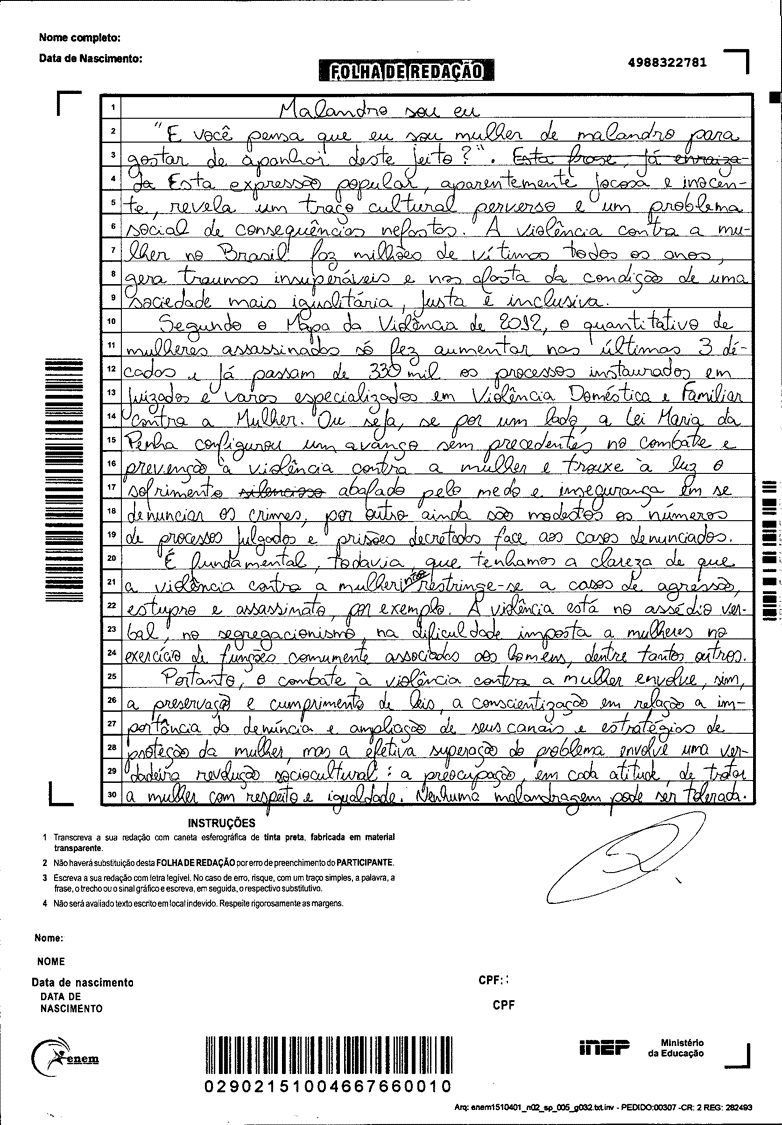 Nome completo:
Data de Nascimento:
FOLHA DE REDAÇÃO
4988322781
1 Malandro sou eu
2 "E você pensa que eu sou mulher de malandro para
3 gostar de apanhar deste jeito?". Esta frase, já enraiza-
4 da Esta expressão popular, aparentemente jocosa e inocen-
5 te, revela um traço cultural perverso e um problema
6 social de consequências nefastas. A violência contra a mu-
7 lher no Brasil faz milhões de vítimas todos os anos,
8 gera traumas insuperáveis e nos afasta da condição de uma
9 sociedade mais igualitária, justa e inclusiva.
10 Segundo o Mapa da Violência de 2012, o quantitativo de
11 mulheres assassinadas só fez aumentar nas últimas 3 dé-
12 cadas e já passam de 330 mil os processos instaurados em
13 juizados e varas especializados em Violência Doméstica e Familiar
14 contra a Mulher. Ou seja, se por um lado, a Lei Maria da
15 Penha configurou um avanço sem precedentes no combate e
16 prevenção à violência contra a mulher e trouxe à luz o
17 sofrimento silencioso abafado pelo medo e insegurança em se
18 denunciar os crimes, por outro ainda são modestos os números
19 de processos julgados e prisões decretadas face aos casos denunciados.
20 É fundamental, todavia, que tenhamos a clareza de que
21 a violência contra a mulher não restringe-se a casos de agressão,
22 estupro e assassinato, por exemplo. A violência está no assédio ver-
23 bal, no segregacionismo, na dificuldade imposta a mulheres no
24 exercício de funções comumente associadas aos homens, dentre tantos outros.
25 Portanto, o combate à violência contra a mulher envolve, sim,
26 a preservação e cumprimento de leis, a conscientização em relação a im-
27 portância da denúncia e ampliação de seus canais e estratégias de
28 proteção da mulher, mas a efetiva superação do problema envolve uma ver-
29 dadeira revolução sociocultural: a preocupação, em cada atitude, de tratar
30 a mulher com respeito e igualdade. Nenhuma malandragem pode ser tolerada.
INSTRUÇÕES
1 Transcreva a sua redação com caneta esferográfica de tinta preta, fabricada em material
transparente.
2 Não haverá substituição desta FOLHA DE REDAÇÃO por erro de preenchimento do PARTICIPANTE.
3 Escreva a sua redação com letra legível. No caso de erro, risque, com um traço simples, a palavra, a
frase, o trecho ou o sinal gráfico e escreva, em seguida, o respectivo substitutivo.
4 Não será avaliado texto escrito em local indevido. Respeite rigorosamente as margens.
Nome:
NOME
Data de nascimento
DATA DE
NASCIMENTO
CPF: :
CPF
enem
029021510046676660010
INEP
Ministério
da Educação
Arq: enem1510401_n02_sp_005_g032.txt.inv - PEDIDO:00307 -CR: 2 REG: 282493